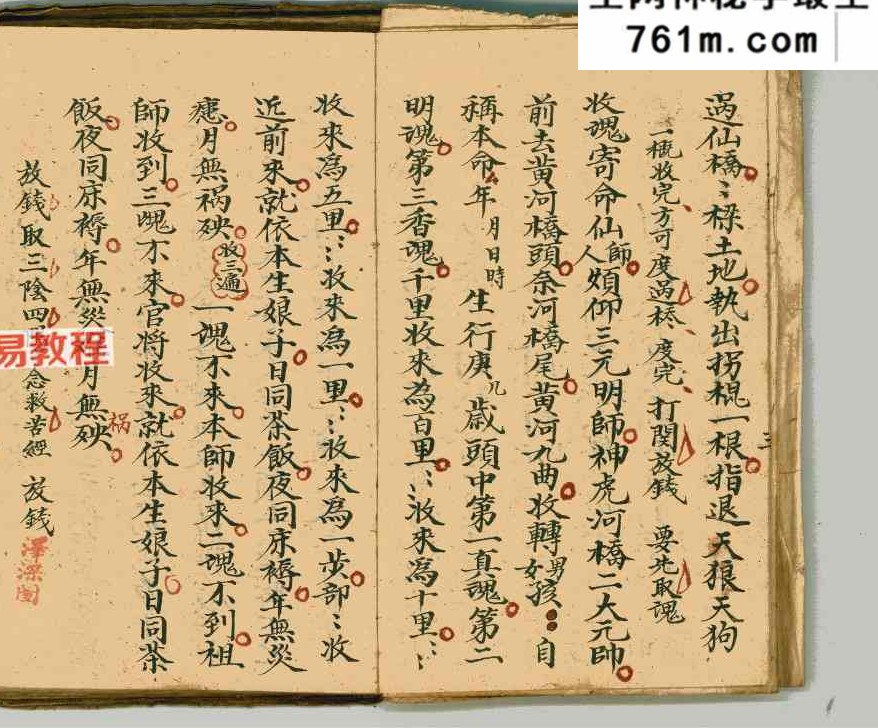 761m.com
過仙橋〻樑土地執出拐棍一根指退天狼天狗
一概收完方可度過桥度完打関放錢 要先取魂
收魂寄命仙師人煩仰三元明師神虎河橋二大元帥
前去黄河橋頭奈河橋尾黄河九曲收轉男女孩自
稱本命年月日時生行庚几歲頭中第一真魂第二
明魂第三香魂千里收來為百里〻〻收來爲十里〻〻
收來爲五里〻〻收來爲一里〻〻收來爲一步部〻收
近前來就依本生娘子日同茶飯夜同床褥年無災
月無祸殃收三遍一魂不來本師收來二魂不到祖
師收到三魂不來官將收來就依本生娘子日同茶
飯夜同床褥年無災月無殃
祸
放錢取三陰四念救苦經 放錢
易教程
三